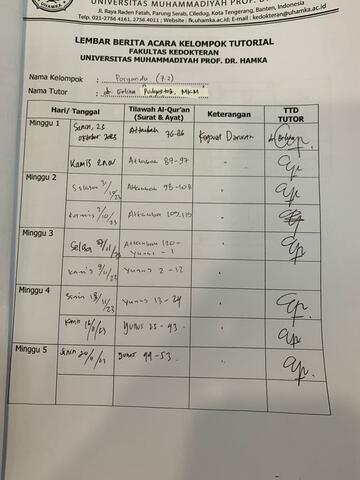 UNIVERSITAS MUHAMMADIYAH PROF. DR.
Jl. Raya Raden Fatah, Parung Serab, Ciledug, Kota Tengerang, Banten, Indonesia
Telp. 021-2756 4161, 2756 4011 ; Website : fk.uhamka.ac.id; E-mail : kedokteran@uhamka.ac.id
LEMBAR BERITA ACARA KELOMPOK TUTORIAL
FAKULTAS KEDOKTERAN
UNIVERSITAS MUHAMMADIYAH PROF. DR. HAMKA
Nama Kelompok : Posyandu (7.2)
Nama Tutor : dr. Erlina Puspita, MKM
Hari/ Tanggal Tilawah Al-Qur'an (Surat & Ayat) Keterangan TTD TUTOR
Minggu 1 Senin, 23 Oktober 2023 Attaubah 76-86 Kegawat Daruratan
Kamis Attaubah 87-97 "
Minggu 2 Selasa Attaubah 98-108 "
Kamis Attaubah "
Minggu 3 Selasa Attaubah 120- Yunus - 1 "
Kamis Yunus 2-12 "
Minggu 4 Senin Yunus 13-24 "
Kamis Yunus "
Minggu 5 Senin 20/11/23 Yunus "